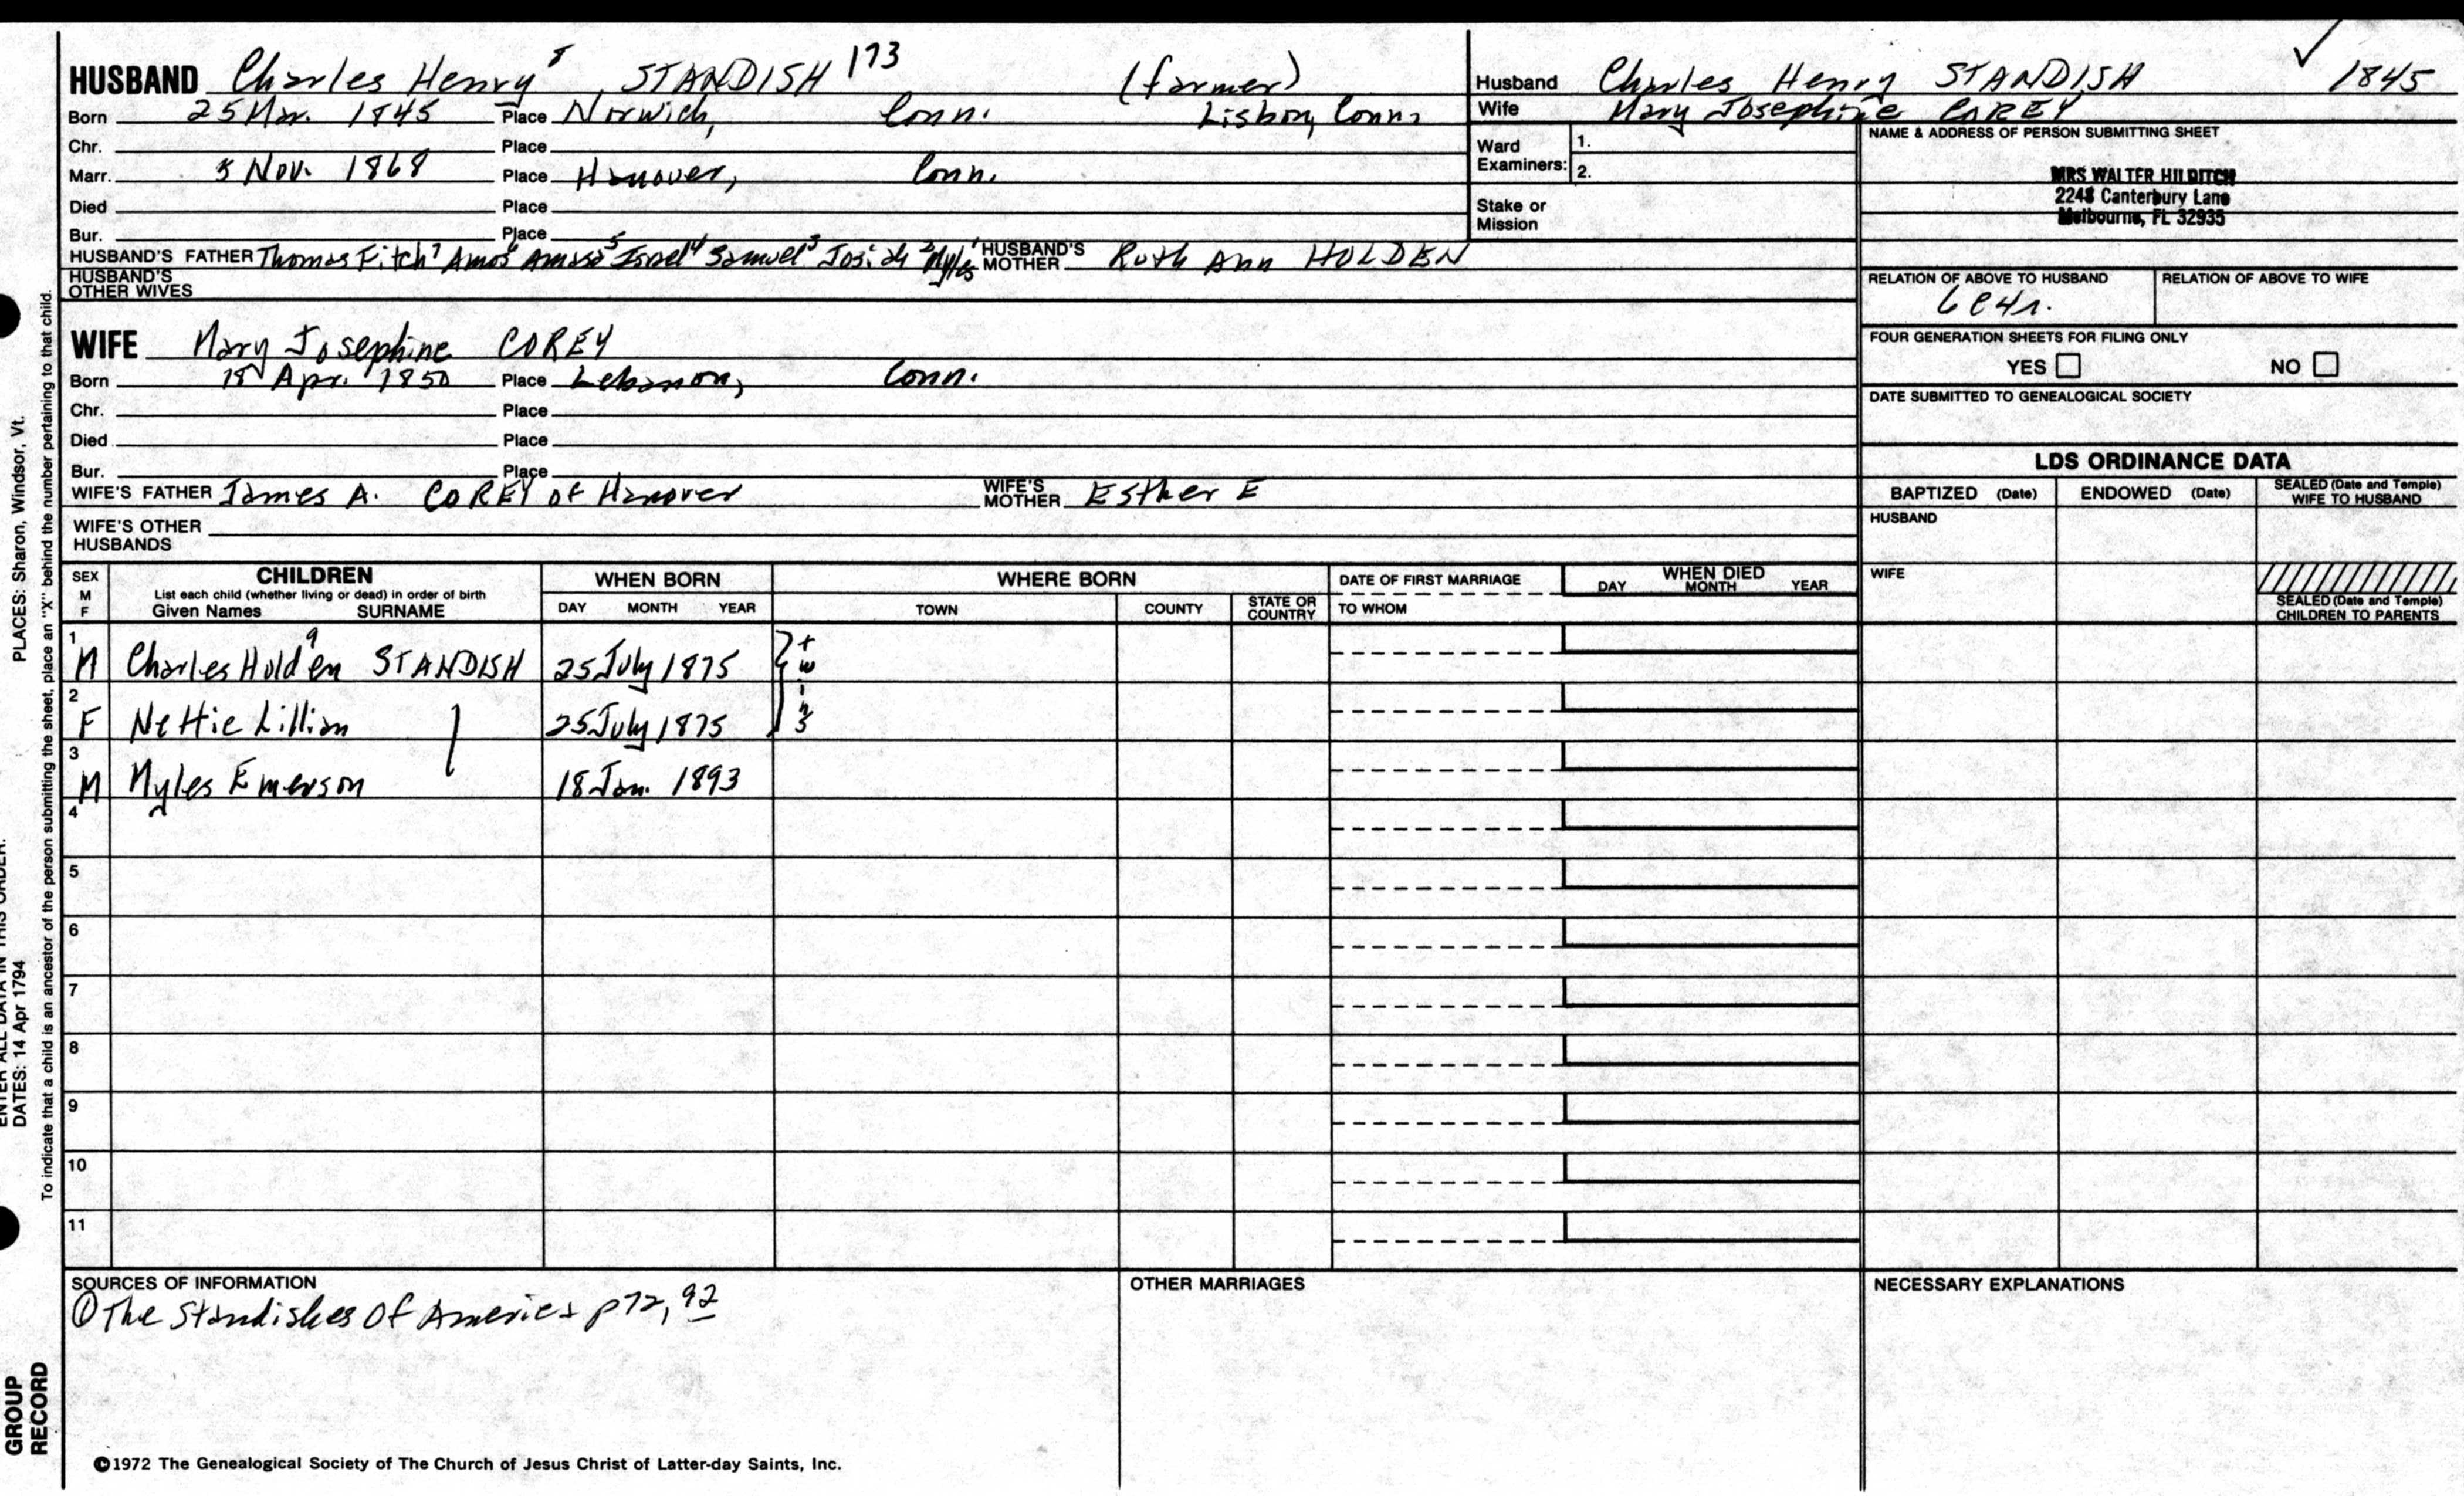 HUSBAND Charles Henry⁸ STANDISH 173 (farmer)
Born 25 Mar. 1845 Place Norwich, Conn. Lisbon, Conn.
Chr. Place
Marr. 3 Nov. 1868 Place Hanover, Conn.
Died Place
Bur. Place
HUSBAND'S FATHER Thomas Fitch⁷ Amos⁶ Amasa⁵ Israel⁴ Samuel³ Josiah² Myles¹ HUSBAND'S MOTHER Ruth Ann HOLDEN
HUSBAND'S OTHER WIVES
WIFE Mary Josephine COREY
Born 18 Apr. 1850 Place Lebanon, Conn.
Chr. Place
Died Place
Bur. Place
WIFE'S FATHER James A. COREY of Hanover WIFE'S MOTHER Esther E
WIFE'S OTHER HUSBANDS
Husband Charles Henry STANDISH 1845
Wife Mary Josephine COREY
Ward Examiners: 1.
2.
Stake or Mission
NAME & ADDRESS OF PERSON SUBMITTING SHEET
MRS WALTER HILDITCH
2248 Canterbury Lane
Melbourne, FL 32935
RELATION OF ABOVE TO HUSBAND RELATION OF ABOVE TO WIFE
6c4r.
FOUR GENERATION SHEETS FOR FILING ONLY
YES NO
DATE SUBMITTED TO GENEALOGICAL SOCIETY
LDS ORDINANCE DATA
BAPTIZED (Date) ENDOWED (Date) SEALED (Date and Temple) WIFE TO HUSBAND
HUSBAND
WIFE
SEALED (Date and Temple) CHILDREN TO PARENTS
SEX M F
CHILDREN
List each child (whether living or dead) in order of birth
Given Names SURNAME
WHEN BORN
DAY MONTH YEAR
WHERE BORN
TOWN COUNTY STATE OR COUNTRY
DATE OF FIRST MARRIAGE
TO WHOM
WHEN DIED
DAY MONTH YEAR
1 M Charles Holden⁹ STANDISH 25 July 1875 twins
2 F Nettie Lillian 25 July 1875
3 M Myles Emerson 18 Jan. 1893
4
5
6
7
8
9
10
11
SOURCES OF INFORMATION
① The Standishes of America p 72, 92
OTHER MARRIAGES
NECESSARY EXPLANATIONS
©1972 The Genealogical Society of The Church of Jesus Christ of Latter-day Saints, Inc.
PLACES: Sharon, Windsor, Vt.
ENTER ALL DATA IN THIS ORDER:
DATES: 14 Apr 1794
To indicate that a child is an ancestor of the person submitting the sheet, place an "X" behind the number pertaining to that child.
GROUP
RECORD